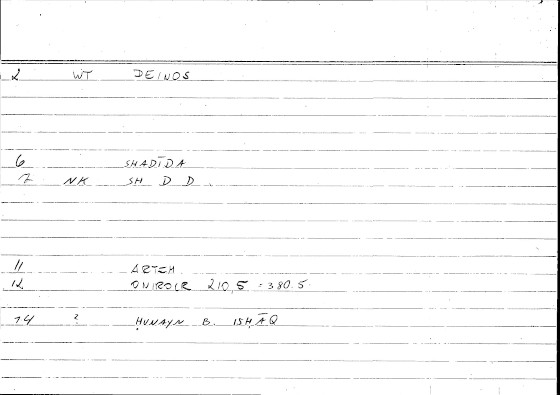 2 WT DEINOS
6 SHADĪDA
7 NK SH D D
11 ARTEM
12 ONIROCR 210,5 = 380.5
14 ? ḤUNAYN B. ISḤĀQ